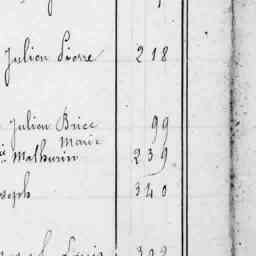 Julien Pierre 218
Julien Brice 99
Marie
Mathurin 239
oseph 340
Louis